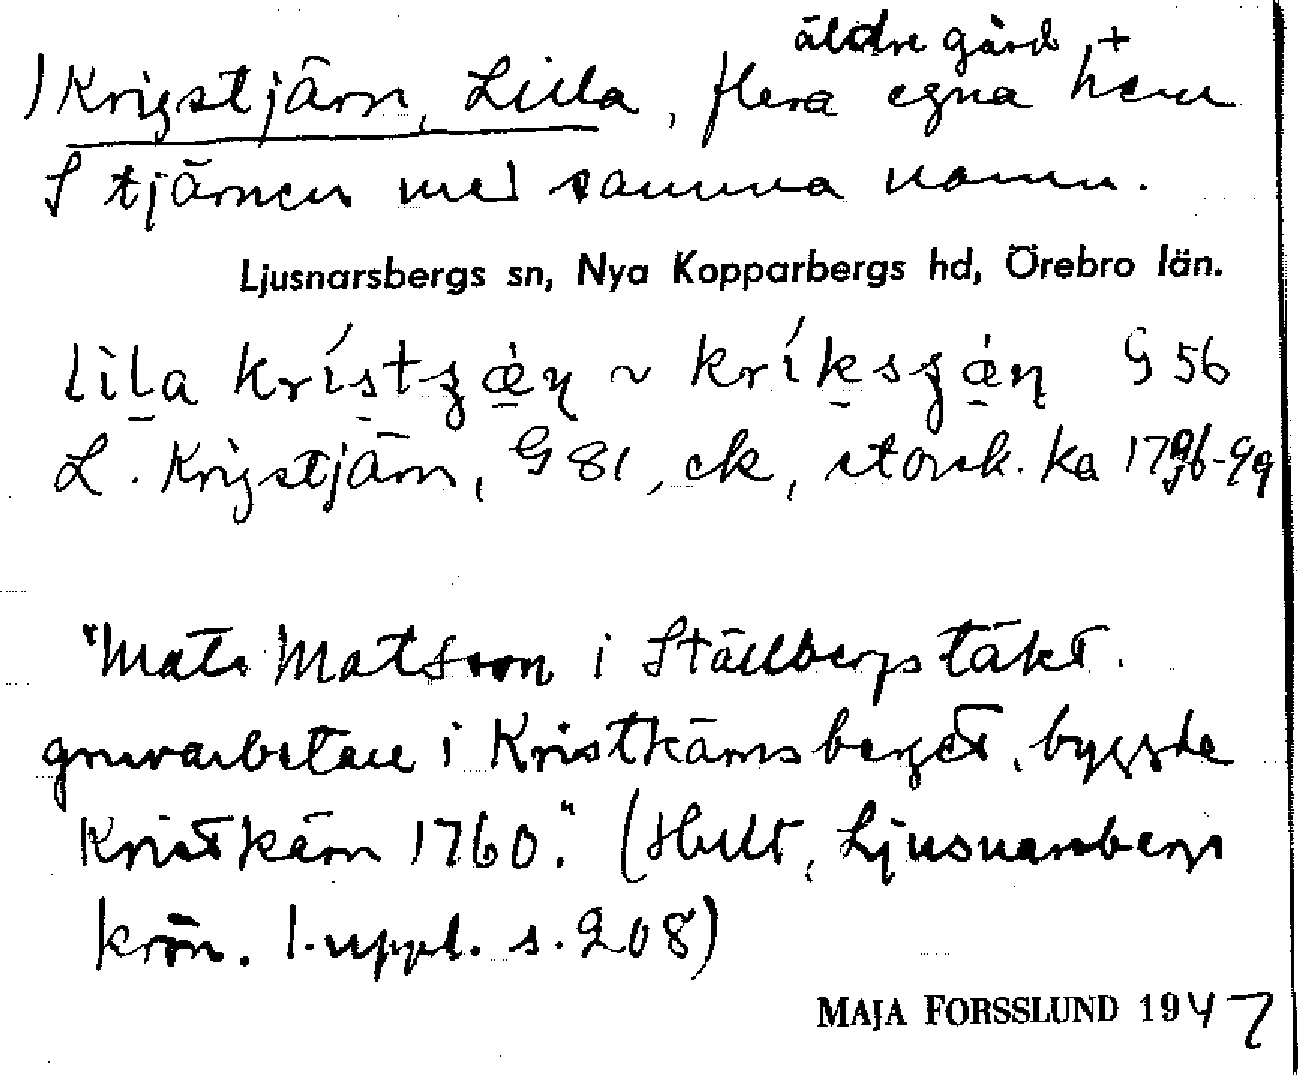 äldre gård +
) Krigstjärn, Lilla, flera egna hem
S tjärnen med samma namn.
Ljusnarsbergs sn, Nya Kopparbergs hd, Örebro län.
lìla krístʒæ̀ɳ ~ kríksʒæ̀ɳ G 56
L. Krigstjärn, G 81, ek, storsk. ka 1796-99
"Mats Matsson i Ställbergstäkt.
gruvarbetare i Kristkärnsberget, byggde
Kristkärn 1760." (Hult, Ljusnarsbergs
krön. 1. uppl. s. 208)
MAJA FORSSLUND 1947